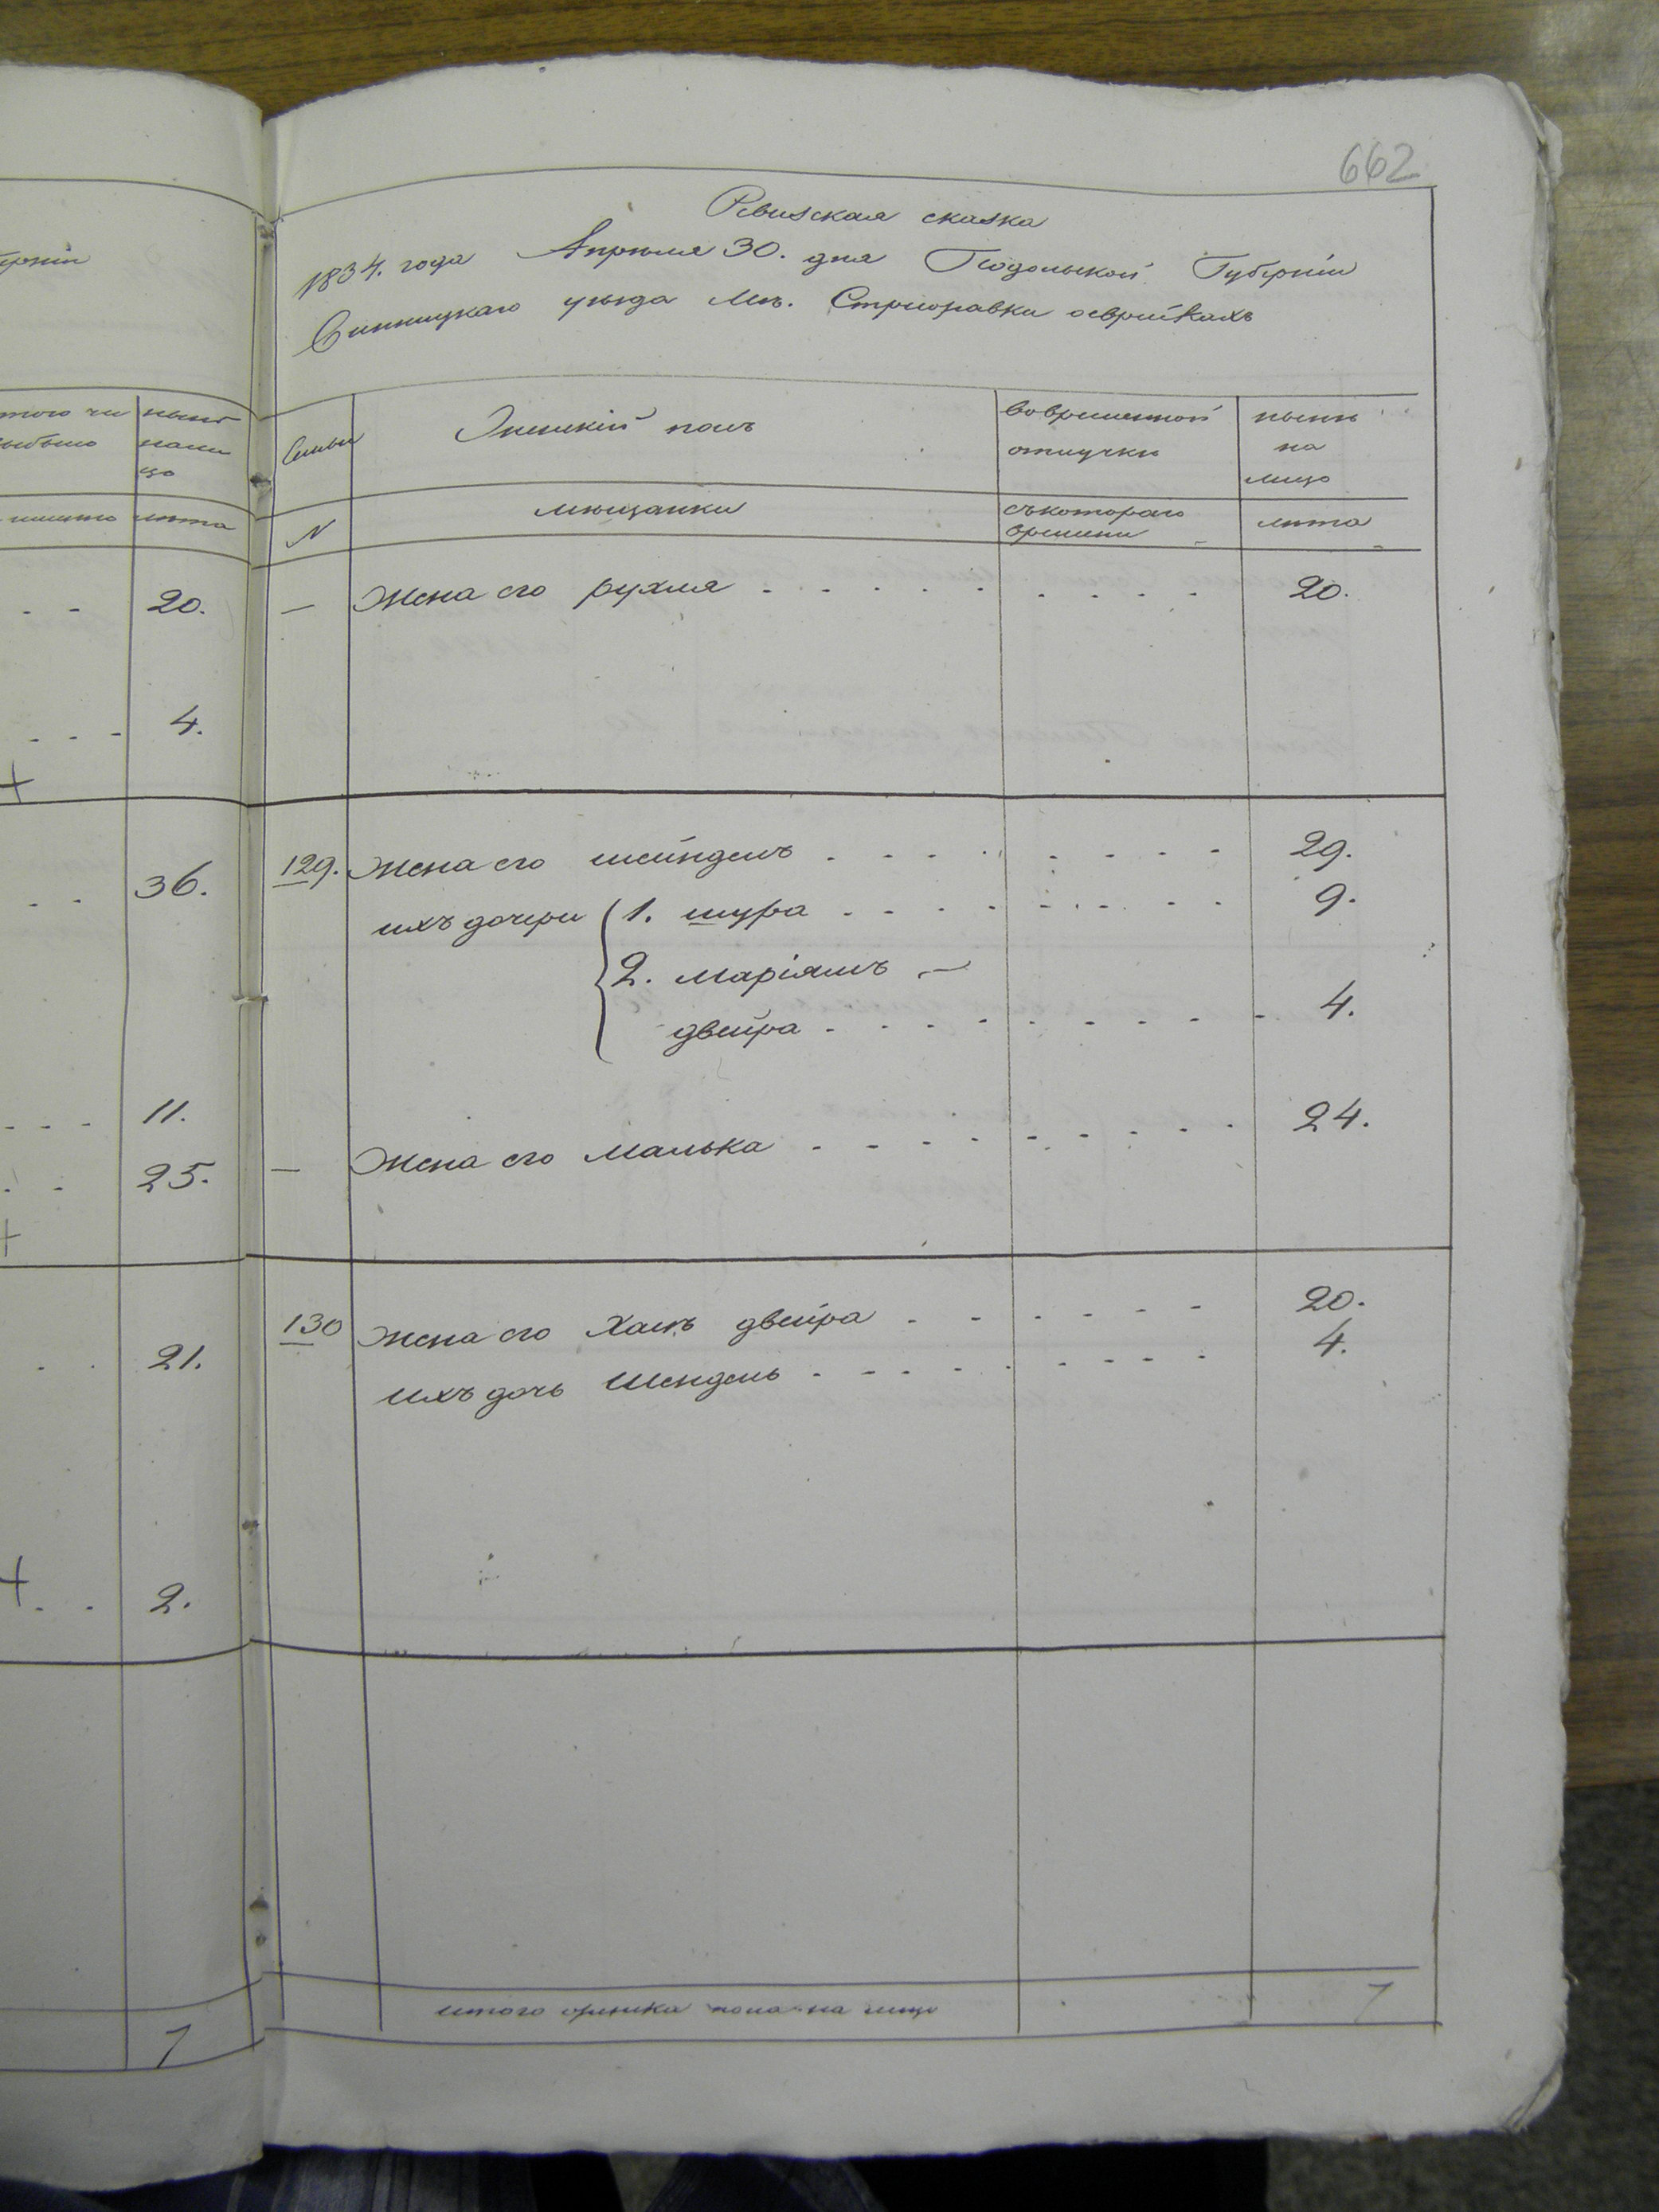 662
Ревизская сказка
1834. года Апреля 30. дня Подольской Губерніи
Винницкаго уезда Мъ. Стрижавки о еврейкахъ
ерніи
того чи ныне
выбыло нали
цо
лета
20.
4.
+
36.
11.
25.
+
21.
+
2.
7
Семьи Женскій полъ во временной ныне
отлучки на
лицо
N мещанки съ котораго лета
времени
— Жена его рухля 20.
129. Жена его шейндель 29.
ихъ дочери 1. шура 9.
2. маріямъ —
двейра 4.
— Жена его малька 24.
130 Жена его Хаякъ двейра 20.
ихъ дочь Шендель 4.
итого женска пола на лицо 7